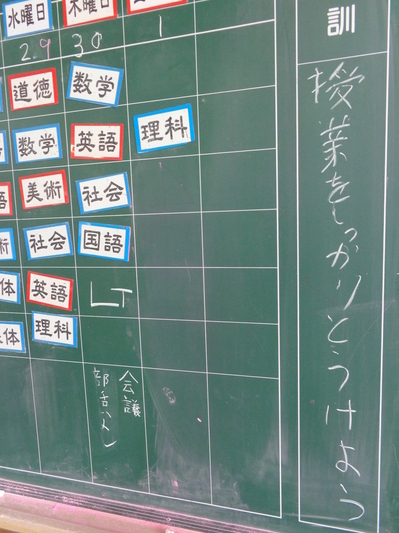 水曜日 木曜日
29 30 1
訓
道徳 数学
数学 英語 理科
美術 社会
社会 国語
体 英語 LT
理科
会議
部活なし
授業をしっかりとうけよう